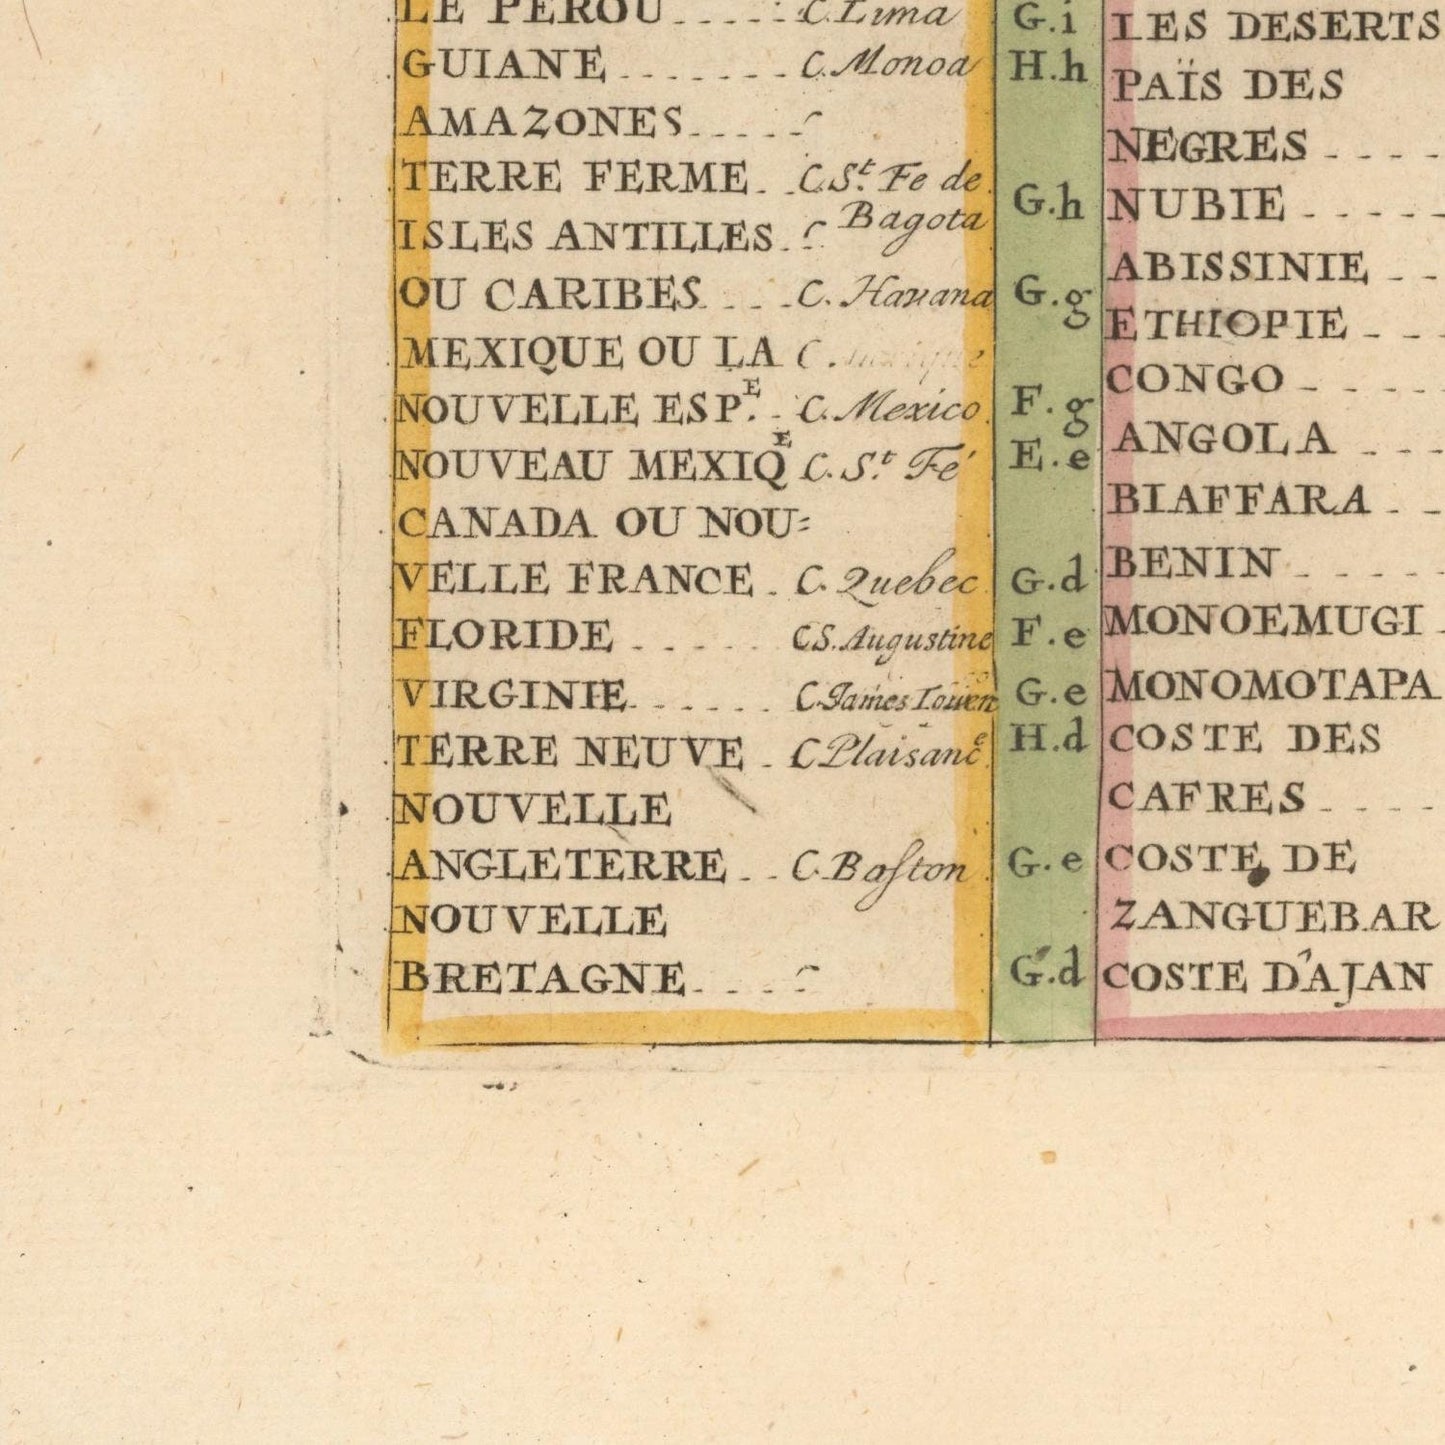 LE PEROU C. Lima G.i
GUIANE C. Monoa H.h
AMAZONES C
TERRE FERME C. S.t Fe de
Bagota G.h
ISLES ANTILLES C
OU CARIBES C. Havana G.g
MEXIQUE OU LA C.
NOUVELLE ESP.E C. Mexico F.g
NOUVEAU MEXIQE C. S.t Fé E.e
CANADA OU NOU=
VELLE FRANCE C. Quebec G.d
FLORIDE C S. Augustine F.e
VIRGINIE C. James Touen G.e
TERRE NEUVE C Plaisance H.d
NOUVELLE
ANGLETERRE C. Boſton G.e
NOUVELLE
BRETAGNE C G.d
LES DESERTS
PAÏS DES
NEGRES
NUBIE
ABISSINIE
ETHIOPIE
CONGO
ANGOLA
BIAFFARA
BENIN
MONOEMUGI
MONOMOTAPA
COSTE DES
CAFRES
COSTE DE
ZANGUEBAR
COSTE D'AJAN